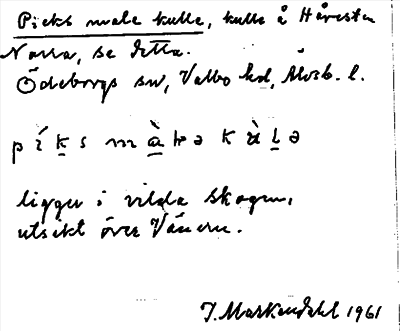 Picks male kulle, kulle å Håvesten
Norra, se detta.
Ödeborgs sn, Valbo hd, Älvsb. l.
pí k s m à ɫə k ù l ə
ligger i vilda skogen,
utsikt över Vänern.
J. Markendahl 1961